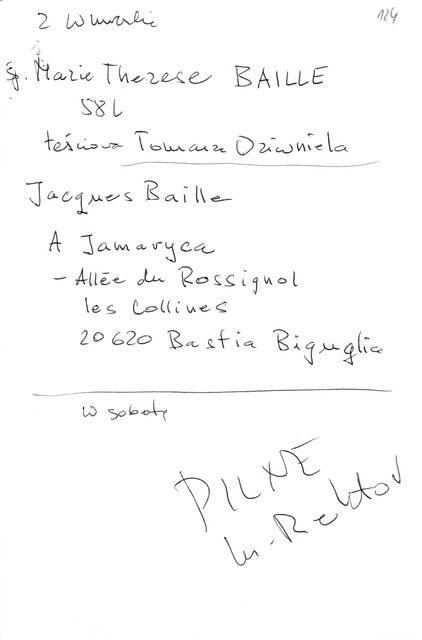 124
Z
Śp. Marie Therese BAILLE
58 l
teściowa Tomasza Dziwniela
Jacques Baille
A Jamaryca
- Allée du Rossignol
les Collines
20620 Bastia Biguglia
W sobotę
PILNE
Rektor